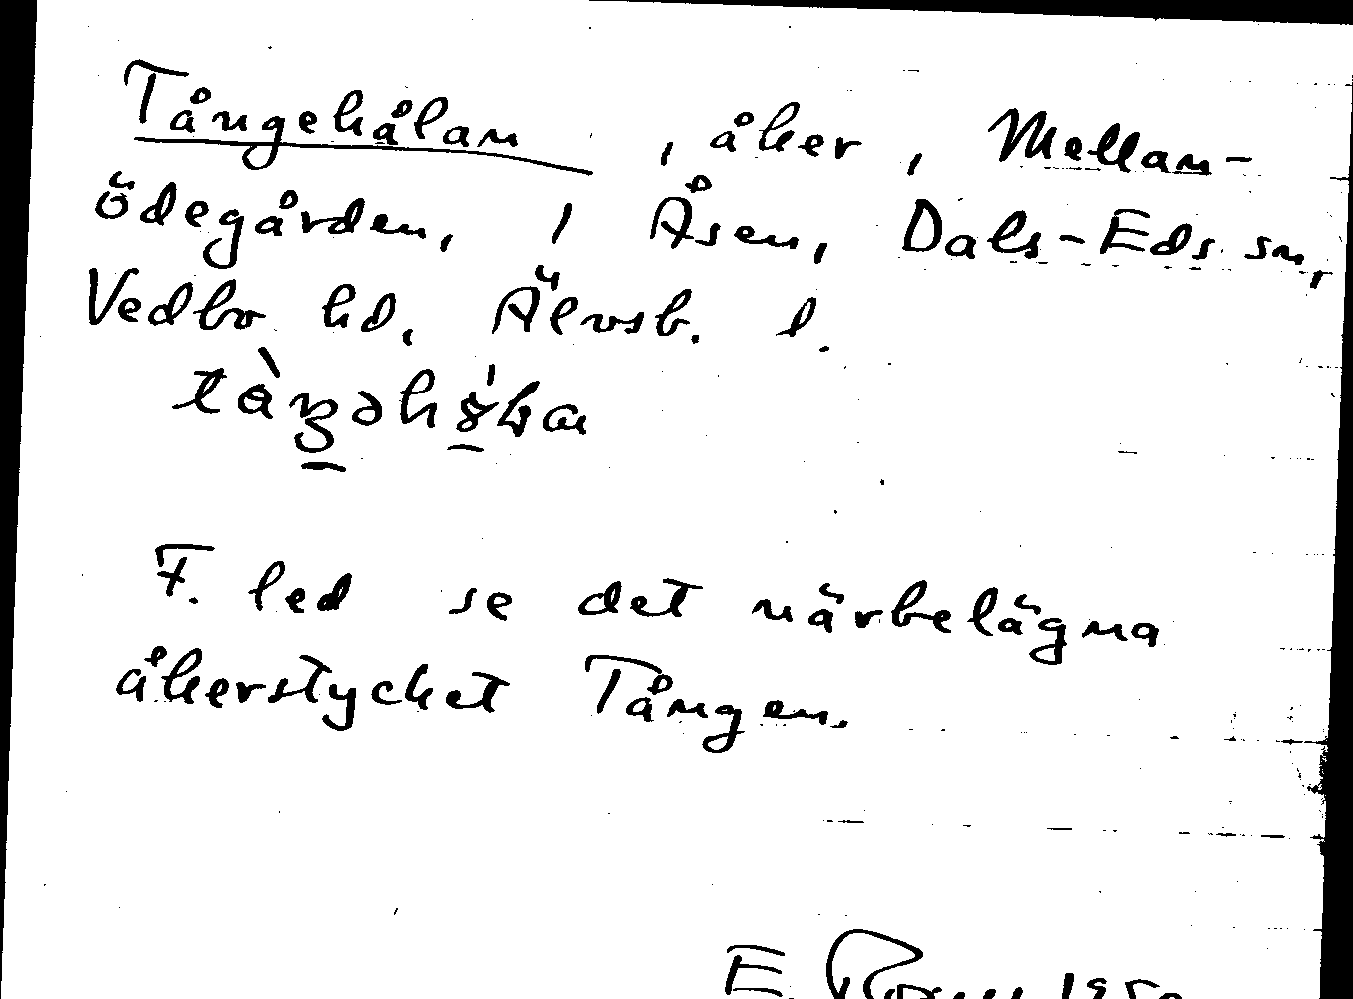 Tångehålan, åker, Mellan-
ödegården, / Åsen, Dals-Eds sn,
Vedbo hd, Älvsb. l.
F. led se det närbelägna
åkerstycket Tången.
E.